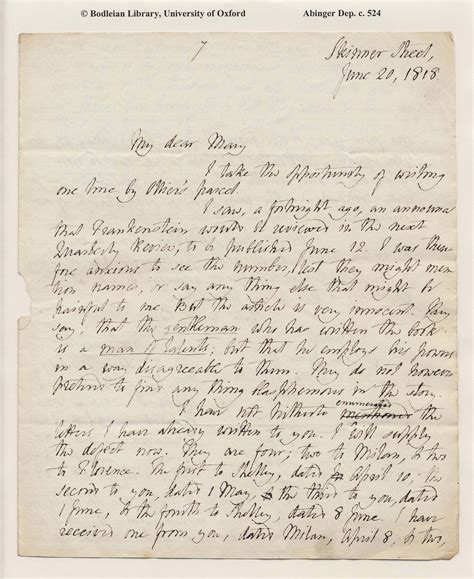 © Bodleian Library, University of Oxford Abinger Dep. c. 524
7
Skinner Street,
June 20, 1818.
My dear Mary
I take the opportunity of writing
one line by Ollier's parcel
I saw, a fortnight ago, an announce
that Frankenstein would be reviewed in the next
Quarterly Review, to be published June 12. I was there-
fore anxious to see the number, lest they might men
tion names, or say any thing else that might be
painful to me. But the article is very innocent. They
say, that the gentleman who has written the book
is a man of talents; but that he employs his powers
in a way disagreeable to them. They do not however
pretend to find any thing blasphemous in the story.
I have not hitherto mentioned enumerated the
letters I have already written to you. I will supply
the defect now. They are four; two to Milan, & two
to Florence. The first to Shelley, dated April 10; the
second to you, dated 1 May, the third to you, dated
1 June, & the fourth to Shelley, dated 8 June. I have
received one from you, dated Milan, April 8, & two,